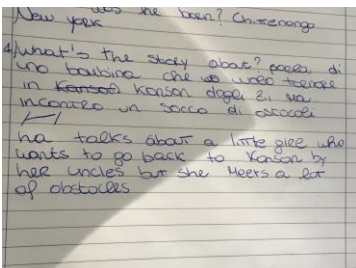 was she born? Chittenango
New york
4 What's the story about? parla di
una bambina che vuole tornare
in Kanson dagli zii ma
incontro un sacco di ostocoli
ha talks about a little girl who
wants to go back to Kanson by
her uncles but she meets a lot
of obstocles